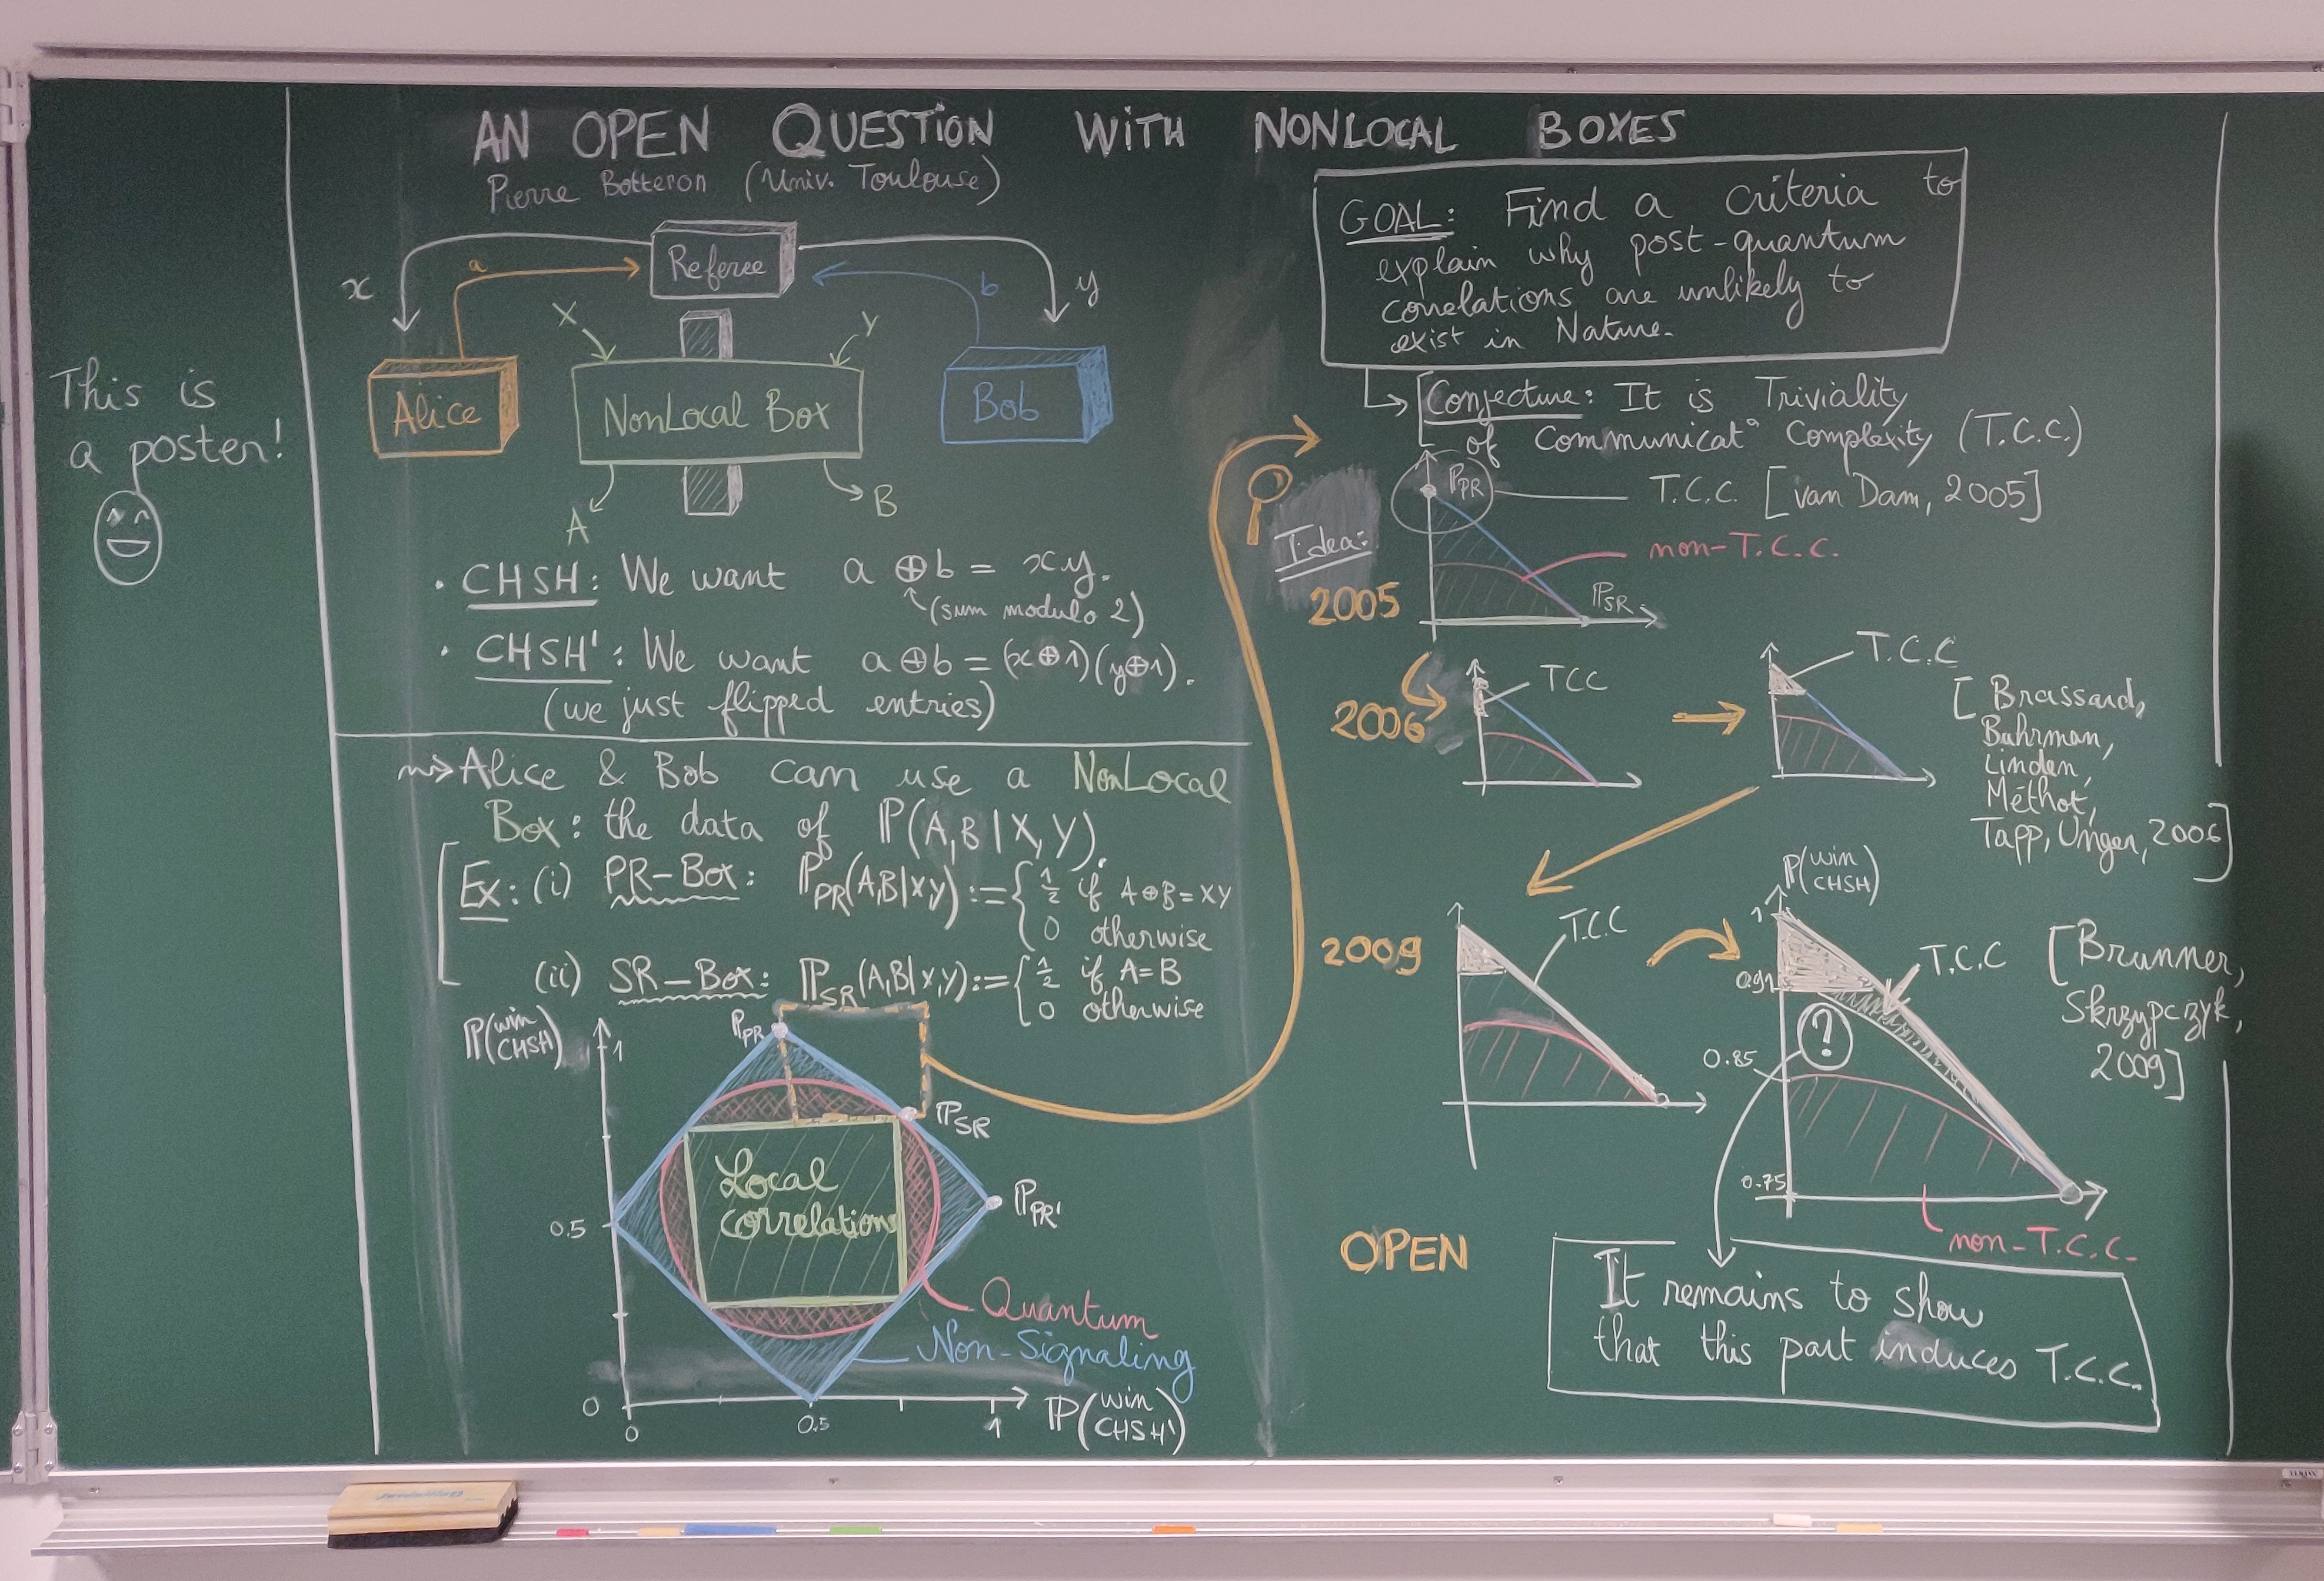 AN OPEN QUESTION WITH NONLOCAL BOXES
Pierre Botteron (Univ. Toulouse)
This is
a poster!
Referee
x
a
b
y
X
Y
Alice
NonLocal Box
Bob
A
B
• CHSH: We want a ⊕ b = xy.
(sum modulo 2)
• CHSH': We want a ⊕ b = (x ⊕ 1)(y ⊕ 1).
(we just flipped entries)
⇝ Alice & Bob can use a NonLocal
Box: the data of ℙ(A,B|X,Y).
Ex: (i) PR-Box: ℙPR(A,B|X,Y) := { 1/2 if A⊕B=XY
0 otherwise
(ii) SR-Box: ℙSR(A,B|X,Y) := { 1/2 if A=B
0 otherwise
ℙ(win CHSH)
1
ℙPR
ℙSR
Local
correlations
ℙPR'
0.5
Quantum
Non-Signaling
0
0
0.5
1
ℙ(win CHSH')
GOAL: Find a criteria to
explain why post-quantum
correlations are unlikely to
exist in Nature.
Conjecture: It is Triviality
of Communicat° Complexity (T.C.C.)
ℙPR
T.C.C. [van Dam, 2005]
Idea:
non-T.C.C.
2005
ℙSR
2006
TCC
T.C.C
[Brassard,
Buhrman,
Linden,
Méthot,
Tapp, Unger, 2006]
2009
T.C.C
ℙ(win CHSH)
1
0.91
T.C.C
[Brunner,
Skrzypczyk,
2009]
?
0.85
0.75
non-T.C.C.
OPEN
It remains to show
that this part induces T.C.C.